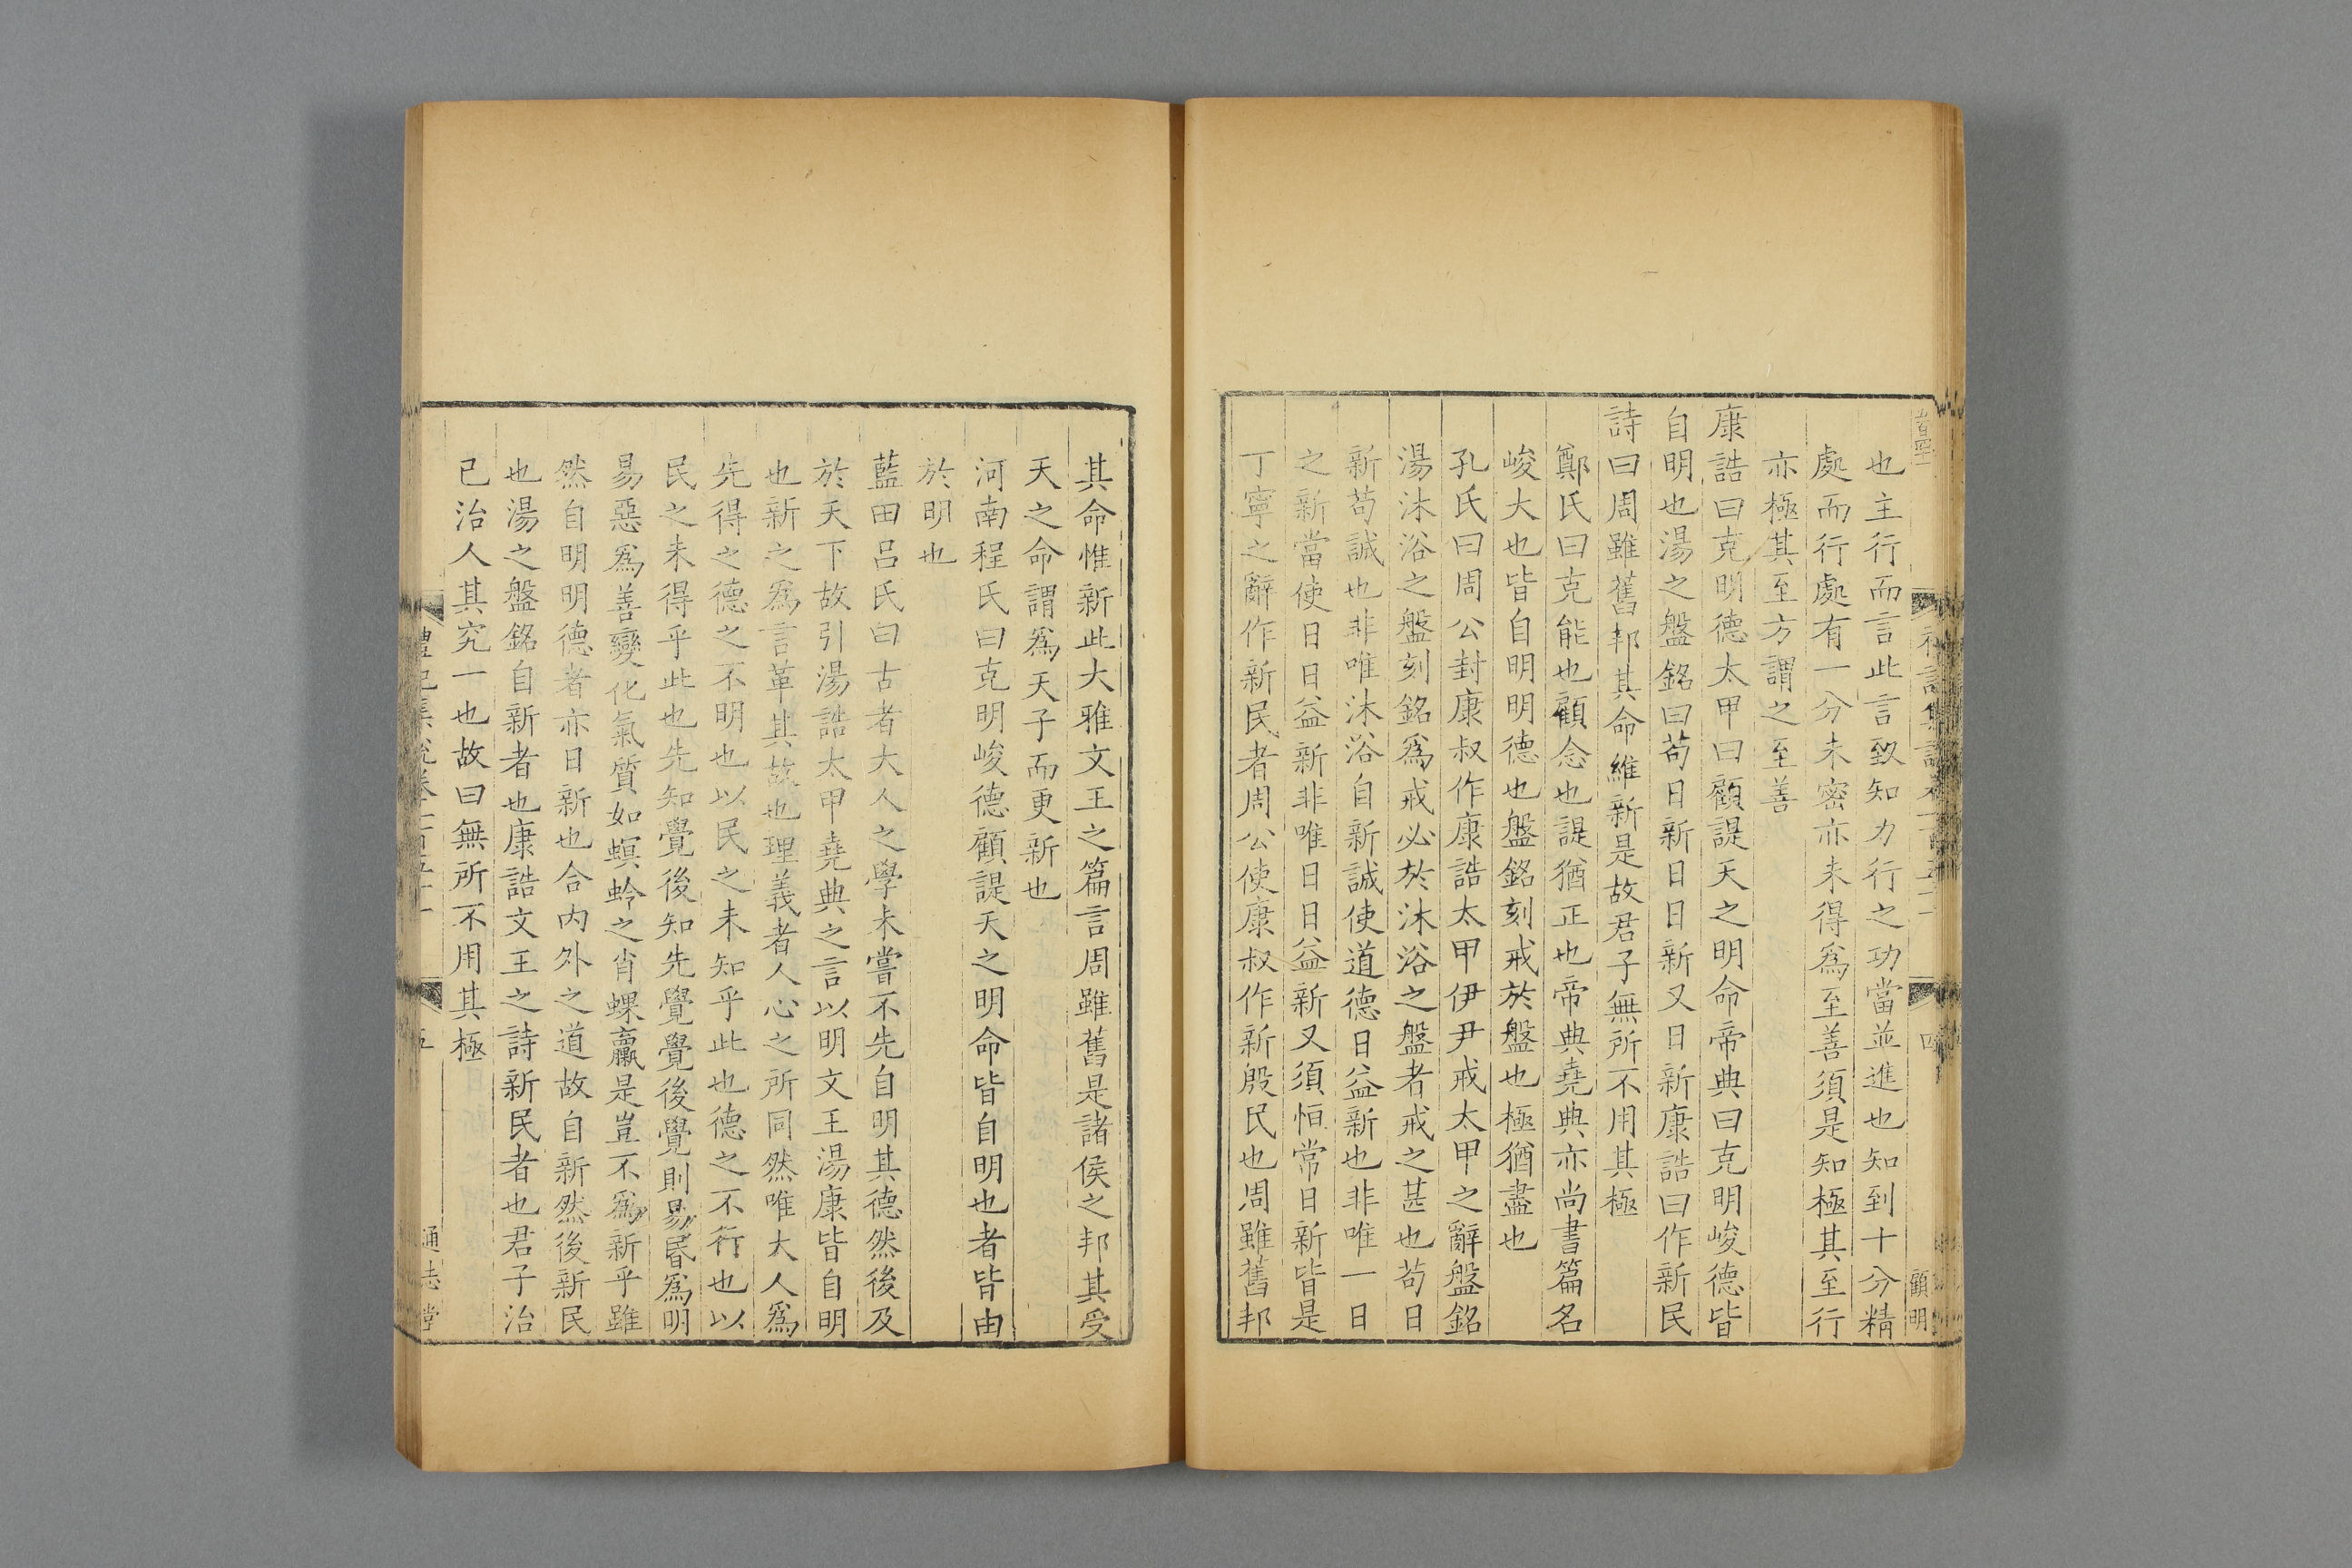 也主行而言此言致知力行之功當並進也知到十分精
處而行處有一分未密亦未得爲至善須是知極其至行
亦極其至方謂之至善
康誥曰克明德太甲曰顧諟天之明命帝典曰克明峻德皆
自明也湯之盤銘曰苟日新日日新又日新康誥曰作新民
詩曰周雖舊邦其命維新是故君子無所不用其極
鄭氏曰克能也顧念也諟猶正也帝典堯典亦尚書篇名
峻大也皆自明明德也盤銘刻戒於盤也極猶盡也
孔氏曰周公封康叔作康誥太甲伊尹戒太甲之辭盤銘
湯沐浴之盤刻銘爲戒必於沐浴之盤者戒之甚也苟日
新苟誠也非唯沐浴自新誠使道德日益新也非唯一日
之新當使日日益新非唯日日益新又須恒常日新皆是
丁寧之辭作新民者周公使康叔作新殷民也周雖舊邦
四
顧明
其命惟新此大雅文王之篇言周雖舊是諸侯之邦其受
天之命謂爲天子而更新也
河南程氏曰克明峻德顧諟天之明命皆自明也者皆由
於明也
藍田呂氏曰古者大人之學未嘗不先自明其德然後及
於天下故引湯誥太甲堯典之言以明文王湯康皆自明
也新之爲言革其故也理義者人心之所同然唯大人爲
先得之德之不明也以民之未知乎此也德之不行也以
民之未得乎此也先知覺後知先覺覺後覺則易昬爲明
易惡爲善變化氣質如螟蛉之肖蜾蠃是豈不爲新乎雖
然自明明德者亦日新也合內外之道故自新然後新民
也湯之盤銘自新者也康誥文王之詩新民者也君子治
已治人其究一也故曰無所不用其極
禮記集說卷
五
通志堂